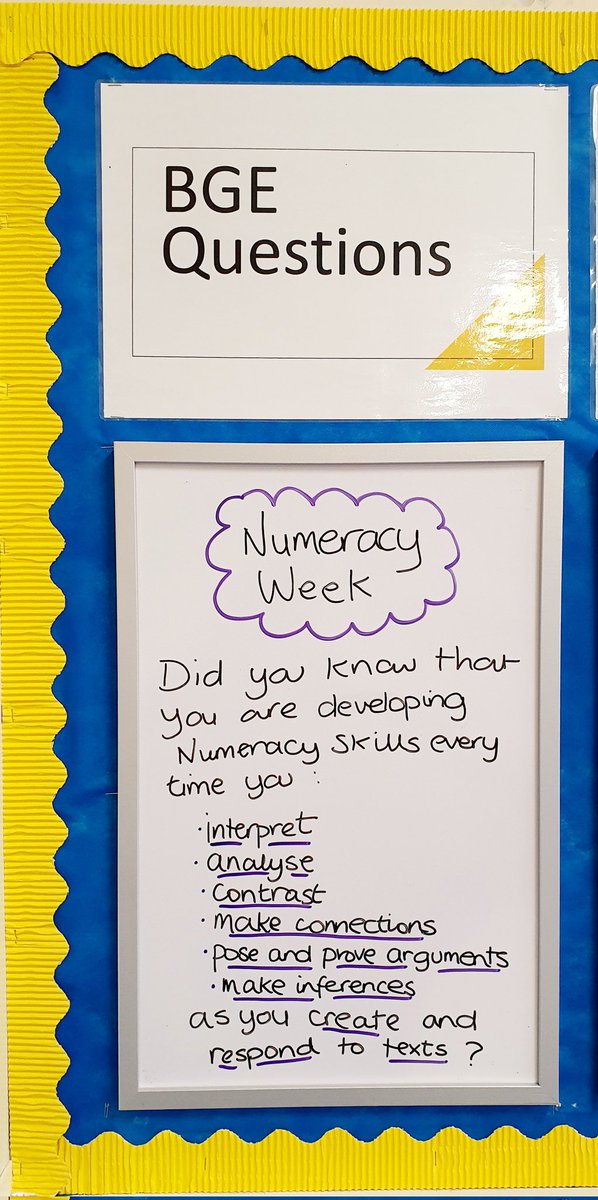 BGE
Questions
Numeracy
Week
Did you know that
you are developing
Numeracy skills every
time you :
· interpret
· analyse
· contrast
· make connections
· pose and prove arguments
· make inferences
as you create and
respond to texts ?